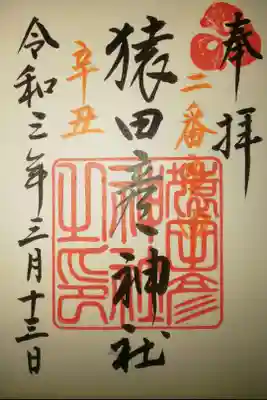 奉拝
二番
猿田彦神社
辛丑
令和三年三月十三日